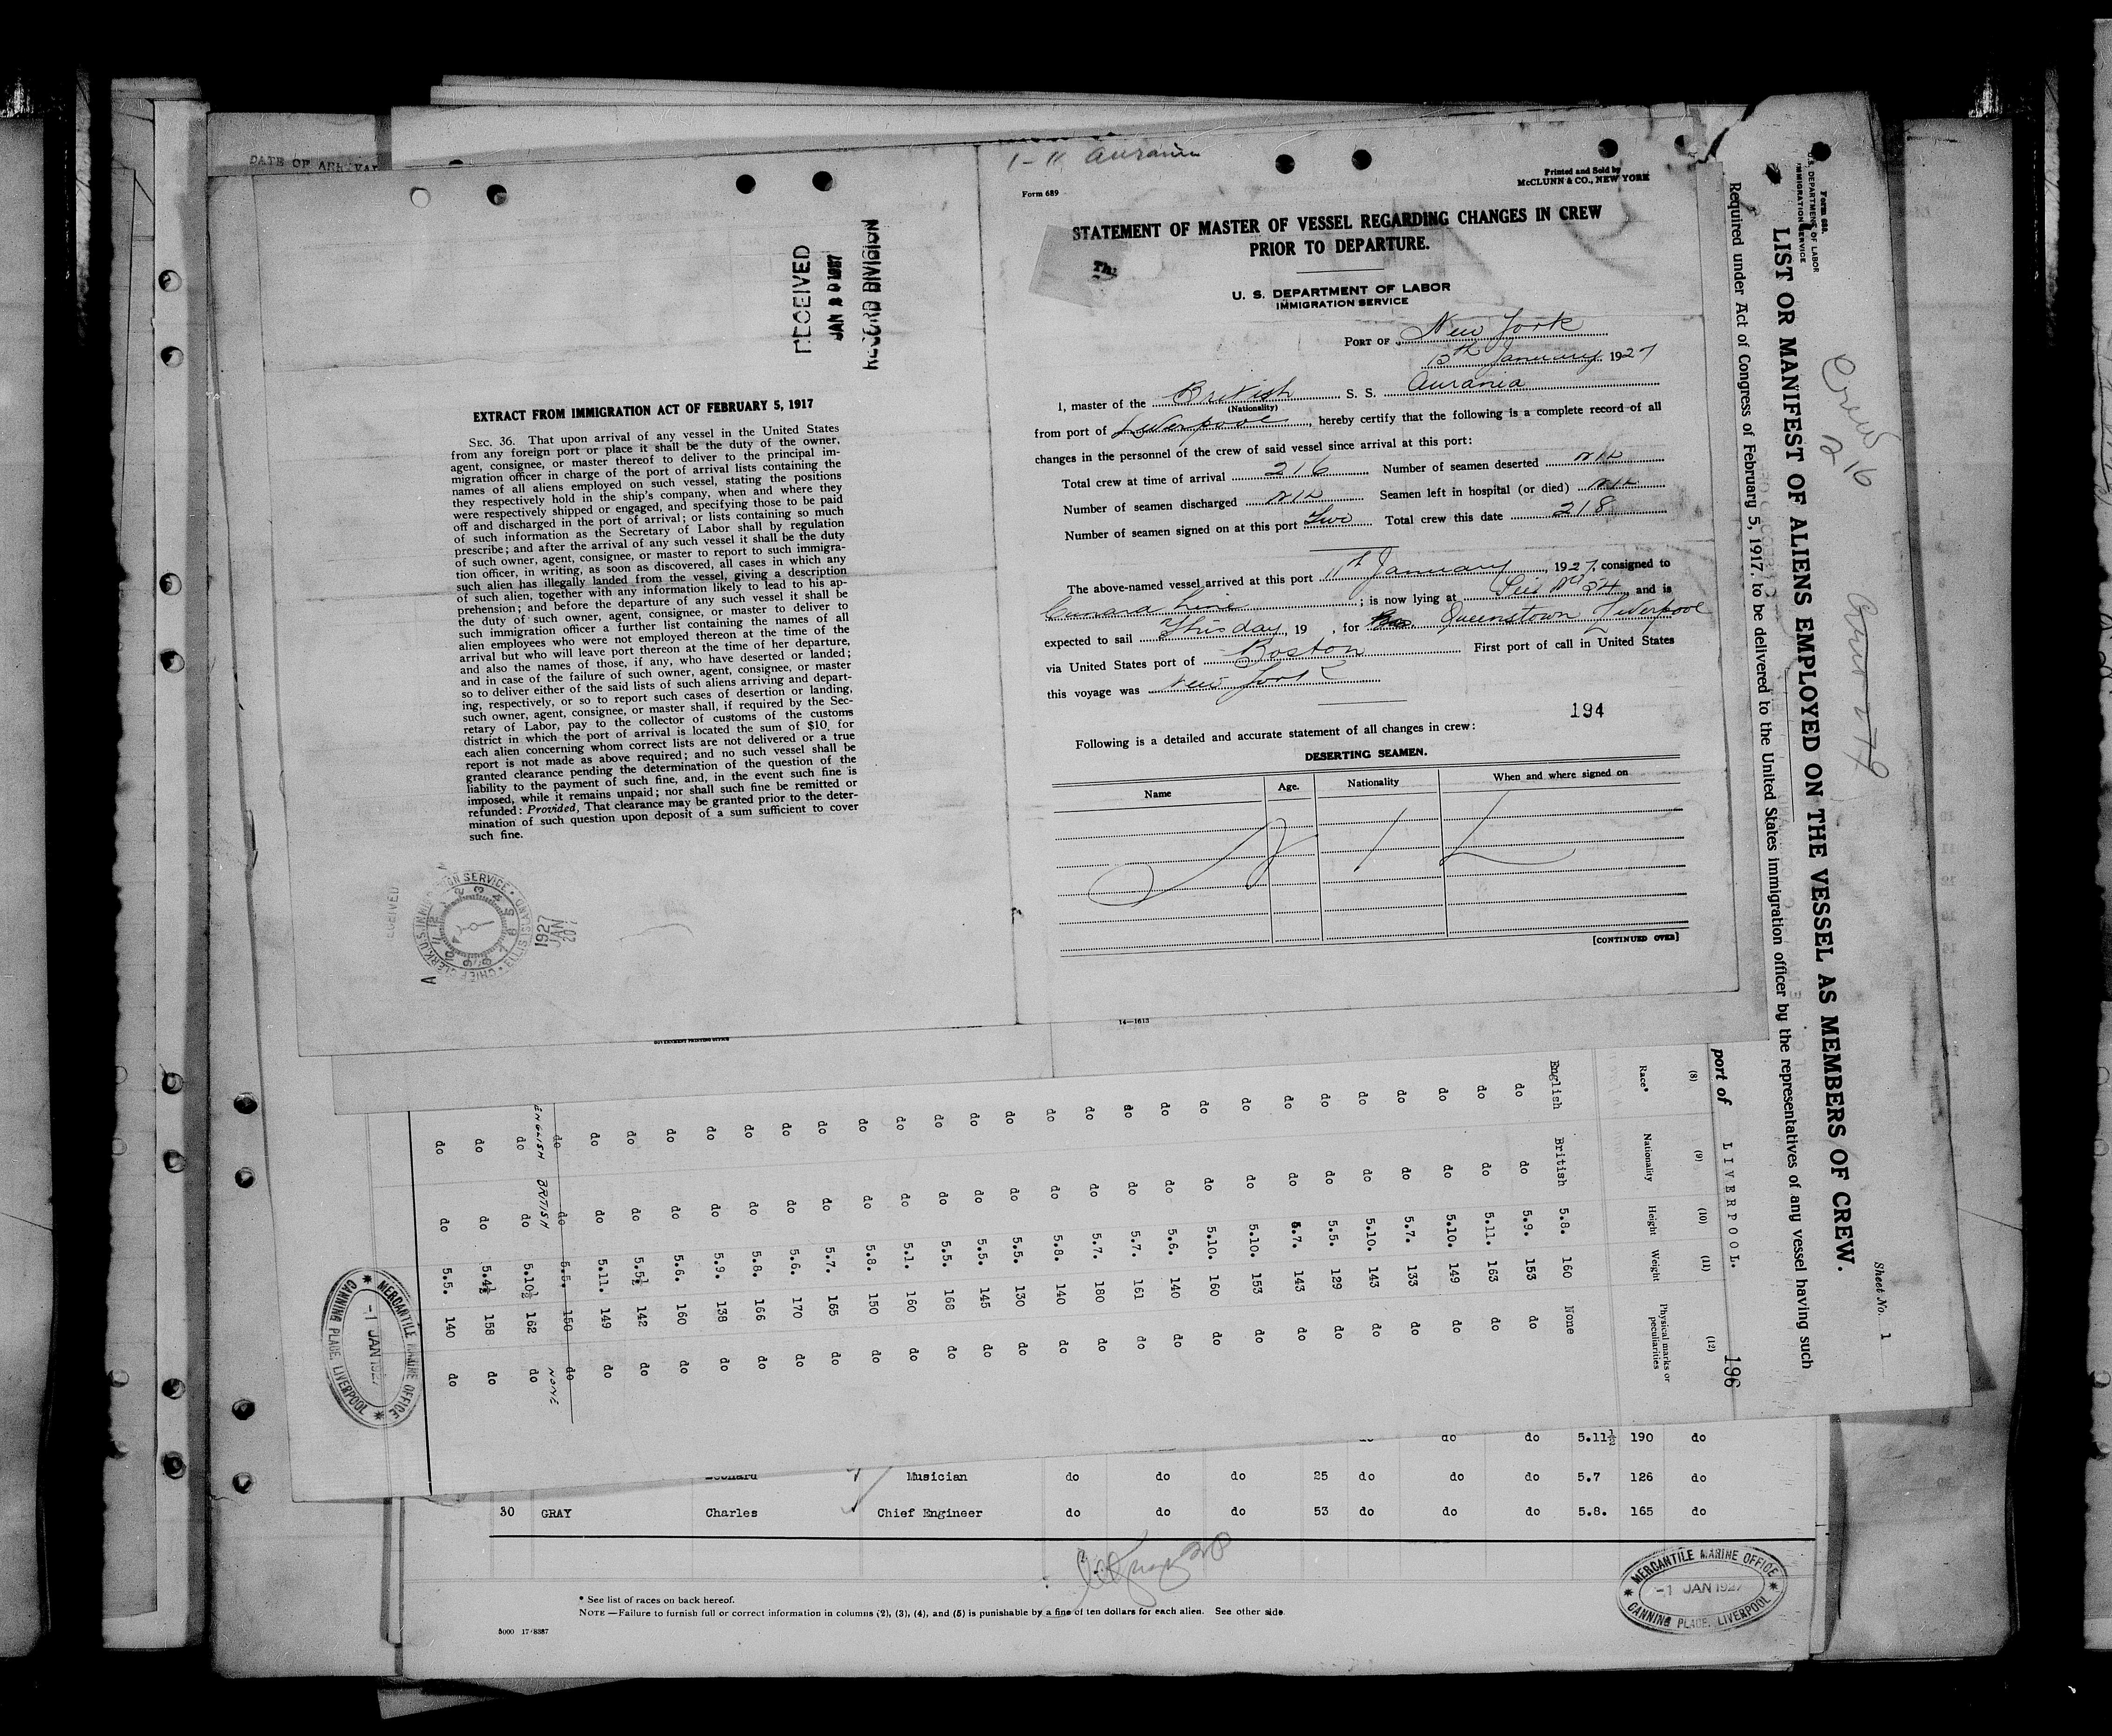 DATE OF ARRIVAL
RECEIVED
JAN 20 1927
RECORD DIVISION
EXTRACT FROM IMMIGRATION ACT OF FEBRUARY 5, 1917
SEC. 36. That upon arrival of any vessel in the United States
from any foreign port or place it shall be the duty of the owner,
agent, consignee, or master thereof to deliver to the principal im-
migration officer in charge of the port of arrival lists containing the
names of all aliens employed on such vessel, stating the positions
they respectively hold in the ship's company, when and where they
were respectively shipped or engaged, and specifying those to be paid
off and discharged in the port of arrival; or lists containing so much
of such information as the Secretary of Labor shall by regulation
prescribe; and after the arrival of any such vessel it shall be the duty
of such owner, agent, consignee, or master to report to such immigra-
tion officer, in writing, as soon as discovered, all cases in which any
such alien has illegally landed from the vessel, giving a description
of such alien, together with any information likely to lead to his ap-
prehension; and before the departure of any such vessel it shall be
the duty of such owner, agent, consignee, or master to deliver to
such immigration officer a further list containing the names of all
alien employees who were not employed thereon at the time of the
arrival but who will leave port thereon at the time of her departure,
and also the names of those, if any, who have deserted or landed;
and in case of the failure of such owner, agent, consignee, or master
so to deliver either of the said lists of such aliens arriving and depart-
ing, respectively, or so to report such cases of desertion or landing,
such owner, agent, consignee, or master shall, if required by the Sec-
retary of Labor, pay to the collector of customs of the customs
district in which the port of arrival is located the sum of $10 for
each alien concerning whom correct lists are not delivered or a true
report is not made as above required; and no such vessel shall be
granted clearance pending the determination of the question of the
liability to the payment of such fine, and, in the event such fine is
imposed, while it remains unpaid; nor shall such fine be remitted or
refunded: Provided, That clearance may be granted prior to the deter-
mination of such question upon deposit of a sum sufficient to cover
such fine.
CHIEF CLERK U.S. IMMIGRATION SERVICE ELLIS ISLAND
1927 JAN 20
GOVERNMENT PRINTING OFFICE
1-11 Aurania
Form 689
Printed and Sold by
McCLUNN & CO., NEW YORK
STATEMENT OF MASTER OF VESSEL REGARDING CHANGES IN CREW
PRIOR TO DEPARTURE.
U. S. DEPARTMENT OF LABOR
IMMIGRATION SERVICE
PORT OF New York
January 1927
I, master of the British S. S. Aurania
(Nationality)
from port of Liverpool, hereby certify that the following is a complete record of all
changes in the personnel of the crew of said vessel since arrival at this port:
Total crew at time of arrival 216 Number of seamen deserted NIL
Number of seamen discharged NIL Seamen left in hospital (or died) NIL
Number of seamen signed on at this port Two Total crew this date 218
The above-named vessel arrived at this port 11th January, 1927, consigned to
Cunard Line; is now lying at Pier No 54 and is
expected to sail This day, 19 , for Queenstown Liverpool
via United States port of Boston First port of call in United States
this voyage was New York
194
Following is a detailed and accurate statement of all changes in crew:
DESERTING SEAMEN.
Name Age. Nationality When and where signed on
N I L
[CONTINUED OVER]
14—1613
Form 689.
U. S. DEPARTMENT OF LABOR
IMMIGRATION SERVICE
LIST OR MANIFEST OF ALIENS EMPLOYED ON THE VESSEL AS MEMBERS OF CREW.
Required under Act of Congress of February 5, 1917, to be delivered to the United States immigration officer by the representatives of any vessel having such
Crew
216
Sheet No. 1
port of LIVERPOOL.
196
(8) (9) (10) (11) (12)
Race* Nationality Height Weight Physical marks or peculiarities
English British 5.8. 160 None
do do 5.9. 153 do
do do 5.11. 163 do
do do 5.10. 149 do
do do 5.7. 133 do
do do 5.10. 143 do
do do 5.5. 129 do
do do 5.7. 143 do
do do 5.10. 153 do
do do 5.10. 160 do
do do 5.6. 140 do
do do 5.7. 161 do
do do 5.7. 180 do
do do 5.8. 140 do
do do 5.5. 130 do
do do 5.5. 145 do
do do 5.5. 168 do
do do 5.1. 160 do
do do 5.8. 150 do
do do 5.7. 165 do
do do 5.6. 170 do
do do 5.8. 166 do
do do 5.9. 138 do
do do 5.6. 160 do
do do 5.5½ 142 do
do do 5.11. 149 do
do do 5.5. 150 do
ENGLISH BRITISH NONE
do do 5.10½ 162 do
do do 5.4½ 158 do
do do 5.5. 140 do
MERCANTILE MARINE OFFICE
-1 JAN 1927
CANNING PLACE, LIVERPOOL
do do 5.11½ 190 do
Leonard Musician do do do 25 do do do 5.7 126 do
30 GRAY Charles Chief Engineer do do do 53 do do do 5.8. 165 do
* See list of races on back hereof.
NOTE—Failure to furnish full or correct information in columns (2), (3), (4), and (5) is punishable by a fine of ten dollars for each alien. See other side.
5000 17/8387
MERCANTILE MARINE OFFICE
-1 JAN 1927
CANNING PLACE, LIVERPOOL